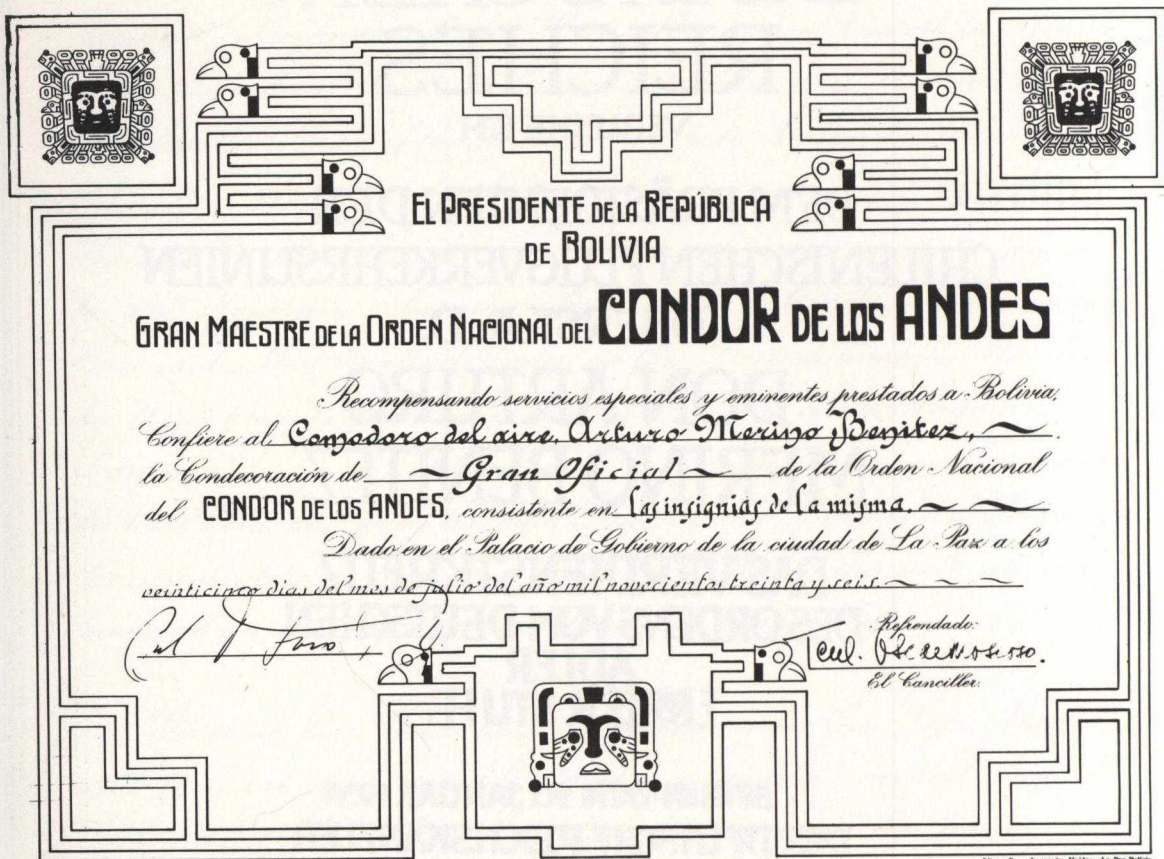 EL PRESIDENTE DE LA REPÚBLICA
DE BOLIVIA
GRAN MAESTRE DE LA ORDEN NACIONAL DEL CONDOR DE LOS ANDES
Recompensando servicios especiales y eminentes prestados a Bolivia,
Confiere al Comodoro del aire, Arturo Merino Benitez,
la Condecoración de Gran Oficial de la Orden Nacional
del CONDOR DE LOS ANDES, consistente en las insignias de la misma.
Dado en el Palacio de Gobierno de la ciudad de La Paz a los
veinticinco días del mes de julio del año mil novecientos treinta y seis
Refrendado:
El Canciller.